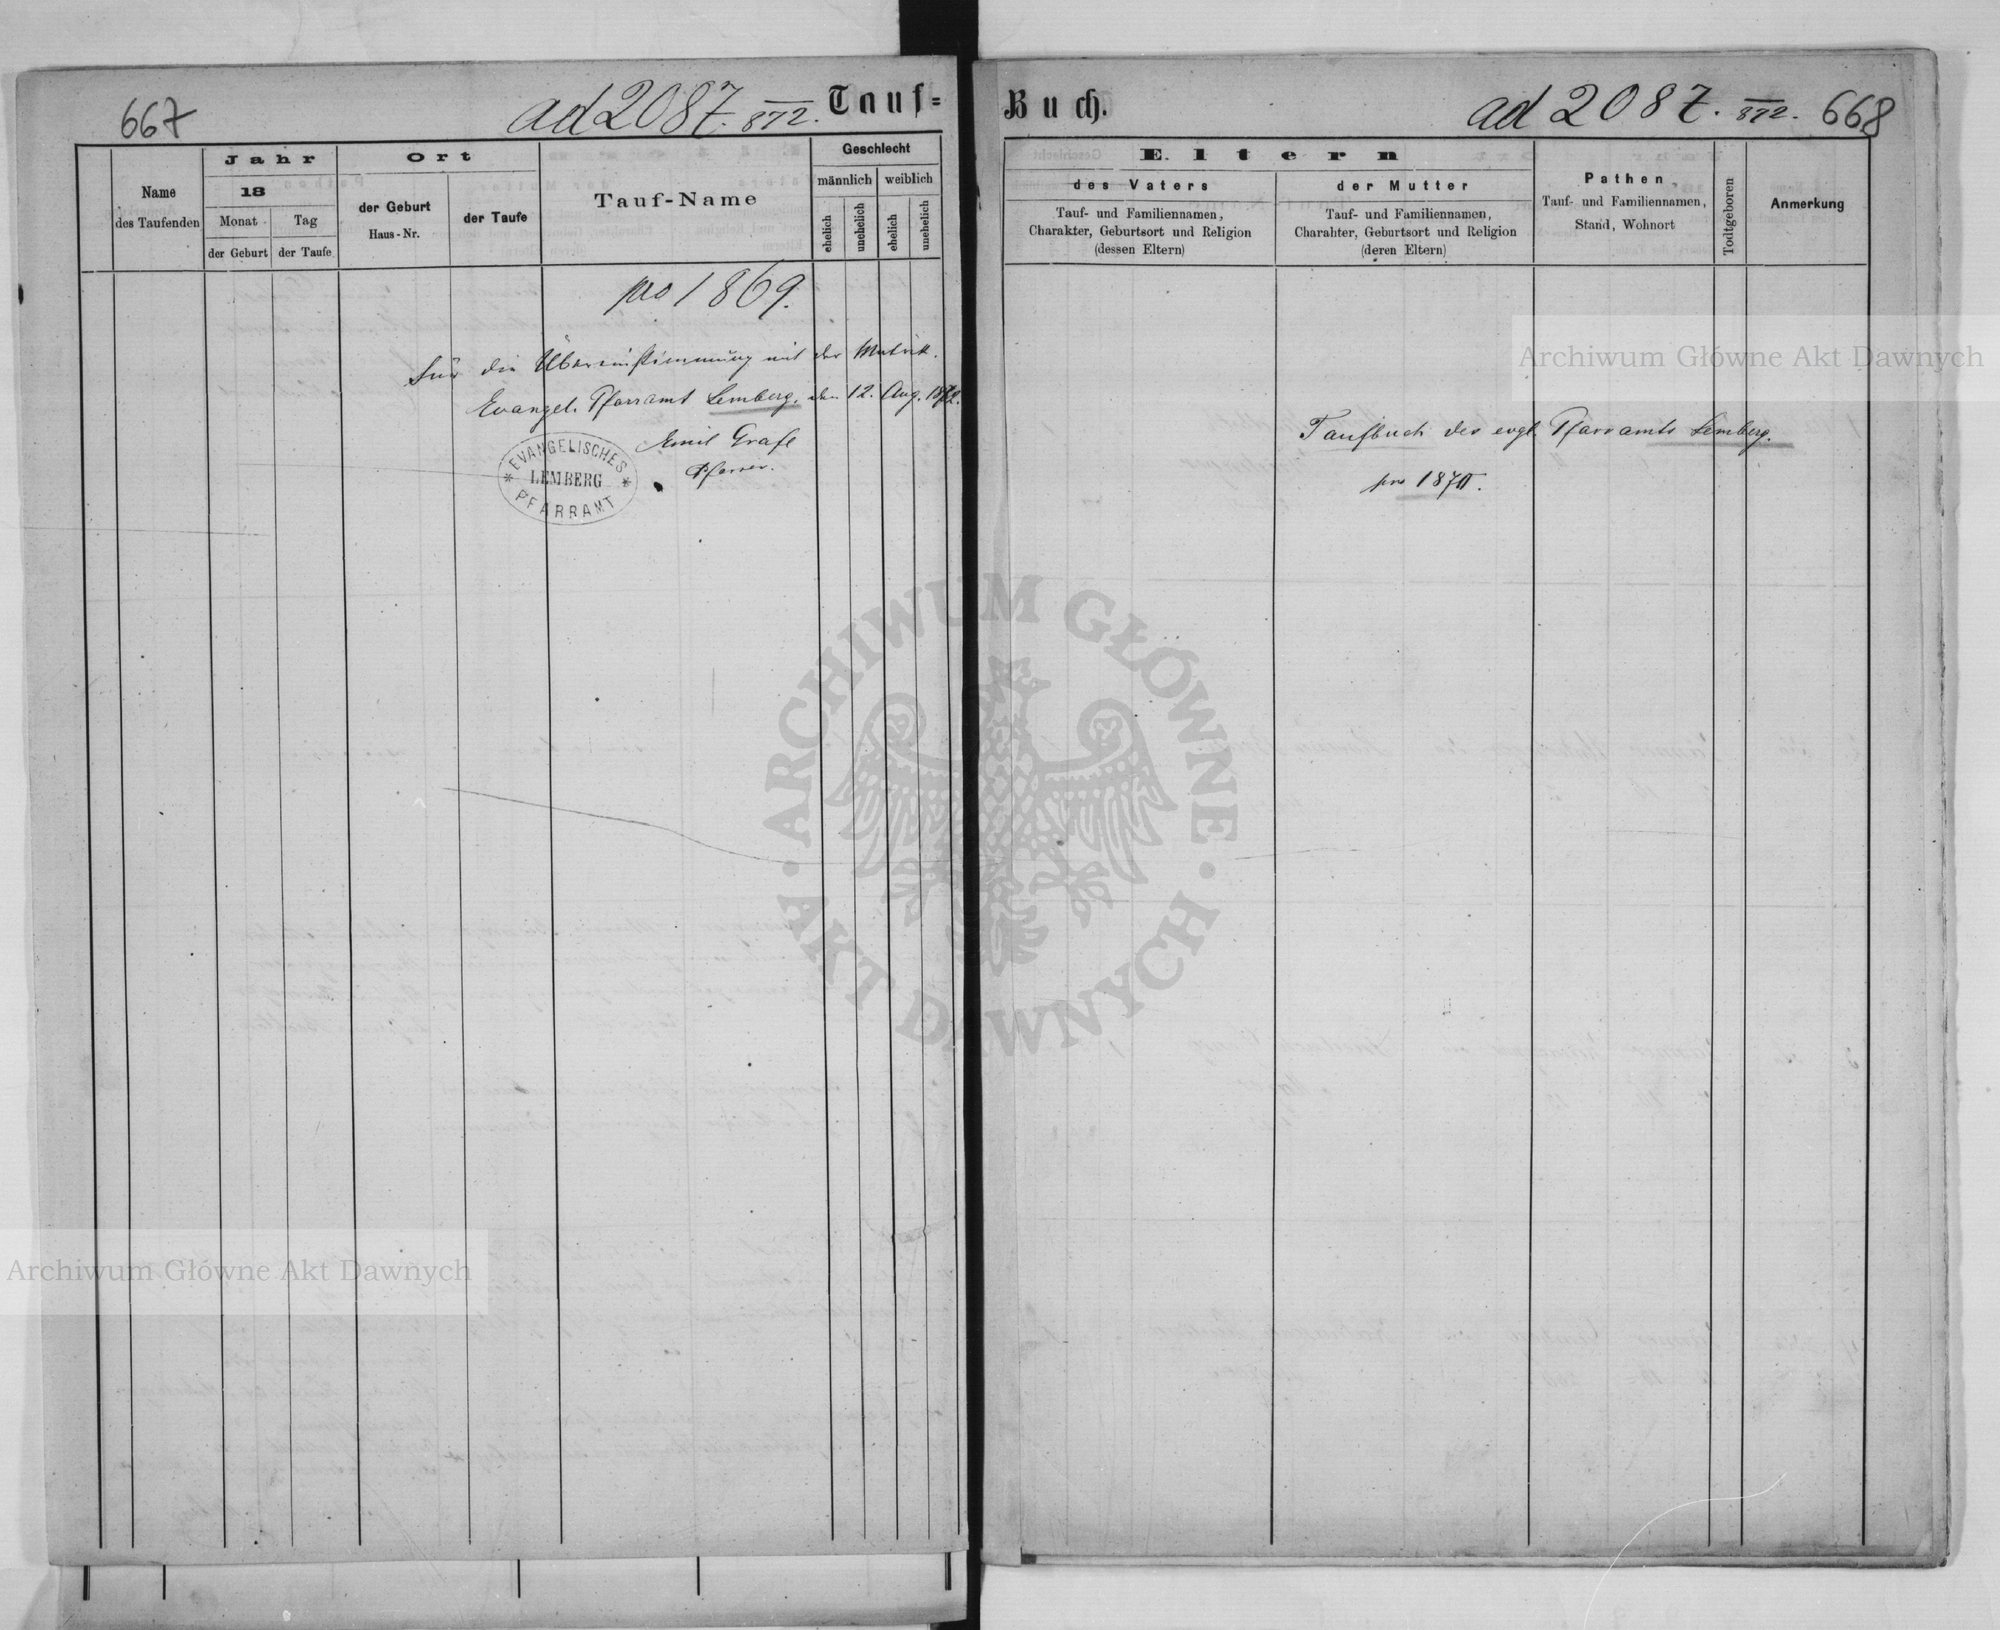 667
ad 2087. 872.
Tauf=
Jahr
Ort
Geschlecht
Name
des Taufenden
18
Monat
Tag
der Geburt
der Taufe
der Geburt
Haus-Nr.
der Taufe
Tauf-Name
männlich
weiblich
ehelich
unehelich
ehelich
unehelich
pro 1869.
Für die Übereinstimmung mit der Matrik.
Evangel. Pfarramt Lemberg, den 12. Aug. 1872.
Emil Grafl
Pfarrer.
EVANGELISCHES
LEMBERG
PFARRAMT
Buch.
ad 2087. 872. 668
Eltern
des Vaters
der Mutter
Tauf- und Familiennamen,
Charakter, Geburtsort und Religion
(dessen Eltern)
Tauf- und Familiennamen,
Charahter, Geburtsort und Religion
(deren Eltern)
Pathen
Tauf- und Familiennamen,
Stand, Wohnort
Todtgeboren
Anmerkung
Taufbuch des evgl. Pfarramts Lemberg.
pro
Archiwum Główne Akt Dawnych
ARCHIWUM GŁÓWNE AKT DAWNYCH
Archiwum Główne Akt Dawnych